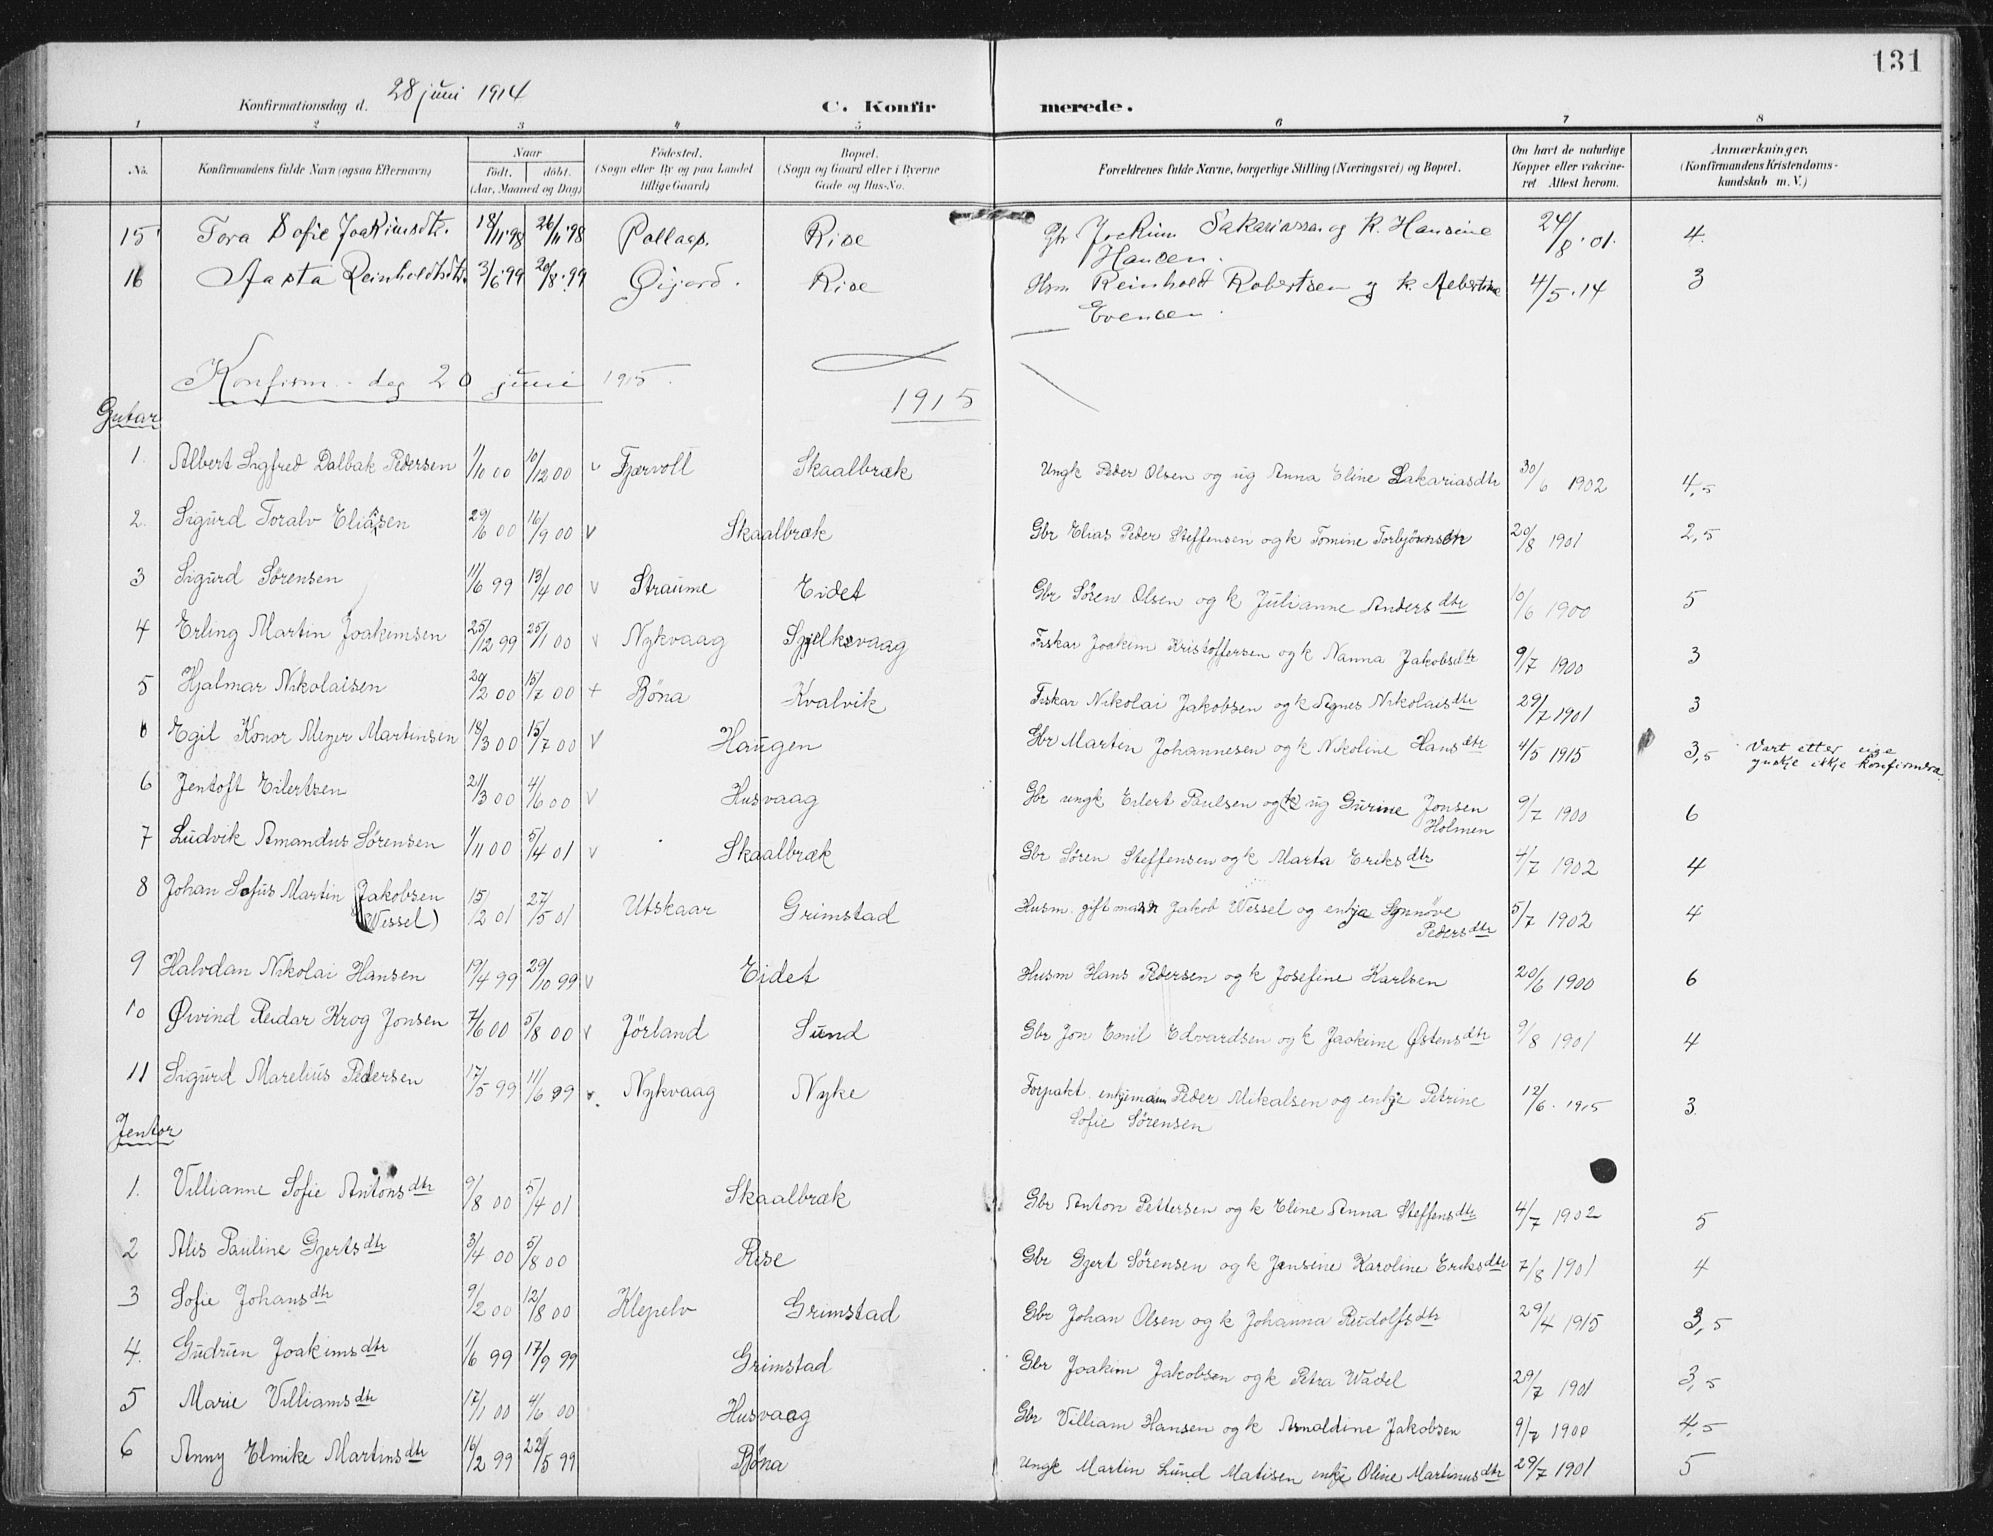 131
Konfirmationsdag d. 28 juni 1914 C. Konfir merede.
1 2 3 4 5 6 7 8
No. Konfirmandens fulde Navn (ogsaa Efternavn) Naar födt. döbt. (Aar, Maaned og Dag) Födested. (Sogn eller By og paa Landet tillige Gaard) Bopæl. (Sogn og Gaard eller i Byerne Gade og Hus-No. Forældrenes fulde Navne, borgerlige Stilling (Næringsvei) og Bopæl. Om havt de naturlige Kopper eller vakcineret Attest herom. Anmærkninger. (Konfirmandens Kristendomskundskab m. V.)
15 Tora Sofie Joakimsdtr. 18/11 98 26/11 98 Pollaas. Rise Gbr Jockim Sakariassen og k. Hansine 24/8 01. 4.
Hansen.
16 Aasta Reinholdtsdtr. 3/6 99 20/8 99 Øijord. Rise Hsm Reinholdt Robertsen og k. Albertine 4/5 14 3
Evensen.
Konfirm. dag 20 juni 1915.
1915
Gutar
1. Albert Sigfred Dalbak Pedersen 1/10 00 10/12 00 v Fjærvoll Skaalbræk Ungk Peder Olsen og ug Anna Eline Sakariasdtr 30/6 1902 4,5
2. Sigurd Toralv Eliassen 29/6 00 16/9 00 v Skaalbræk Gbr Elias Peder Steffensen og k Tomine Torbjørnsdtr 20/8 1901 2,5
3 Sigurd Sørensen 11/6 99 13/4 00 v Straume Eidet Gbr Søren Olsen og k Julianne Andersdtr 10/6 1900 5
4 Erling Martin Joakimsen 25/12 99 25/1 00 v Nykvaag Spjelkevaag Fiskar Joakim Kristoffersen og k Nanna Jakobsdtr 9/7 1900 3
5 Hjalmar Nikolaisen 20/2 00 15/7 00 + Bøna Kvalvik Fiskar Nikolai Jakobsen og k Agnes Nikolaisdtr 29/7 1901 3
Egil Konor Meyer Martinsen 18/3 00 15/7 00 v Haugen Gbr Martin Johannesen og k Nikoline Hansdtr 4/5 1915 3,5 Vart etter eige
ynskje ikkje konfirmera.
6 Jentoft Eilertsen 21/3 00 4/6 00 v Husvaag Gbr ungk Eilert Paulsen og k ug Gurine Jonsen 9/7 1900 6
Holmen
7 Ludvik Amandus Sørensen 1/11 00 5/4 01 v Skaalbræk Gbr Søren Steffensen og k Marta Eriksdtr 4/7 1902 4
8 Johan Sofus Martin Jakobsen 15/12 01 27/5 01 Utskaar Grimstad Husm. gift mann Jakob Wessel og enkja Synnøve 5/7 1902 4
(Wessel) Pedersdtr
9 Halvdan Nikolai Hansen 19/4 99 29/10 99 v Eidet Husm Hans Pedersen og k Josefine Karlsen 20/6 1900 6
10 Øivind Reidar Krog Jonsen 7/6 00 5/8 00 v Jörland Sund Gbr Jon Emil Edvardsen og k Jaakime Østensdtr 9/8 1901 4
11 Sigurd Marelius Pedersen 17/5 99 11/6 99 v. Nykvaag Nyke Forpakt. enkjemann Peder Mikalsen og enkje Petrine 12/6. 1915 3.
Sofie Sørensen
Jentor
1. Villianne Sofie Antonsdtr 9/8 00 5/4 01 Skaalbræk Gbr Anton Pettersen og k Eline Anna Steffensdtr 4/7 1902 5
2 Alis Pauline Gjertsdtr 3/4 00 5/8 00 Rise Gbr Gjert Sørensen og k Jensine Karoline Eriksdtr 7/8 1901 4
3 Sofie Johansdtr 9/2 00 12/8 00 Klepelv Grimstad Gbr Johan Olsen og k Johanna Rudolfsdtr 29/4 1915 3,5
4. Gudrun Joakimsdtr 1/6 99 17/9 99 Grimstad Gbr Joakim Jakobsen og k Petra Wadel 29/7 1901 3,5
5 Marie Villiamsdtr 17/1 00 4/6 00 Husvaag Gbr Villiam Hansen og k Arnaldine Jakobsen 9/7 1900 4,5
6 Anny Elmike Martinsdtr 16/2 99 22/5 99 Bøna Ungk Martin Lund Matisen enkje Oline Martinusdtr 29/7 1901 5